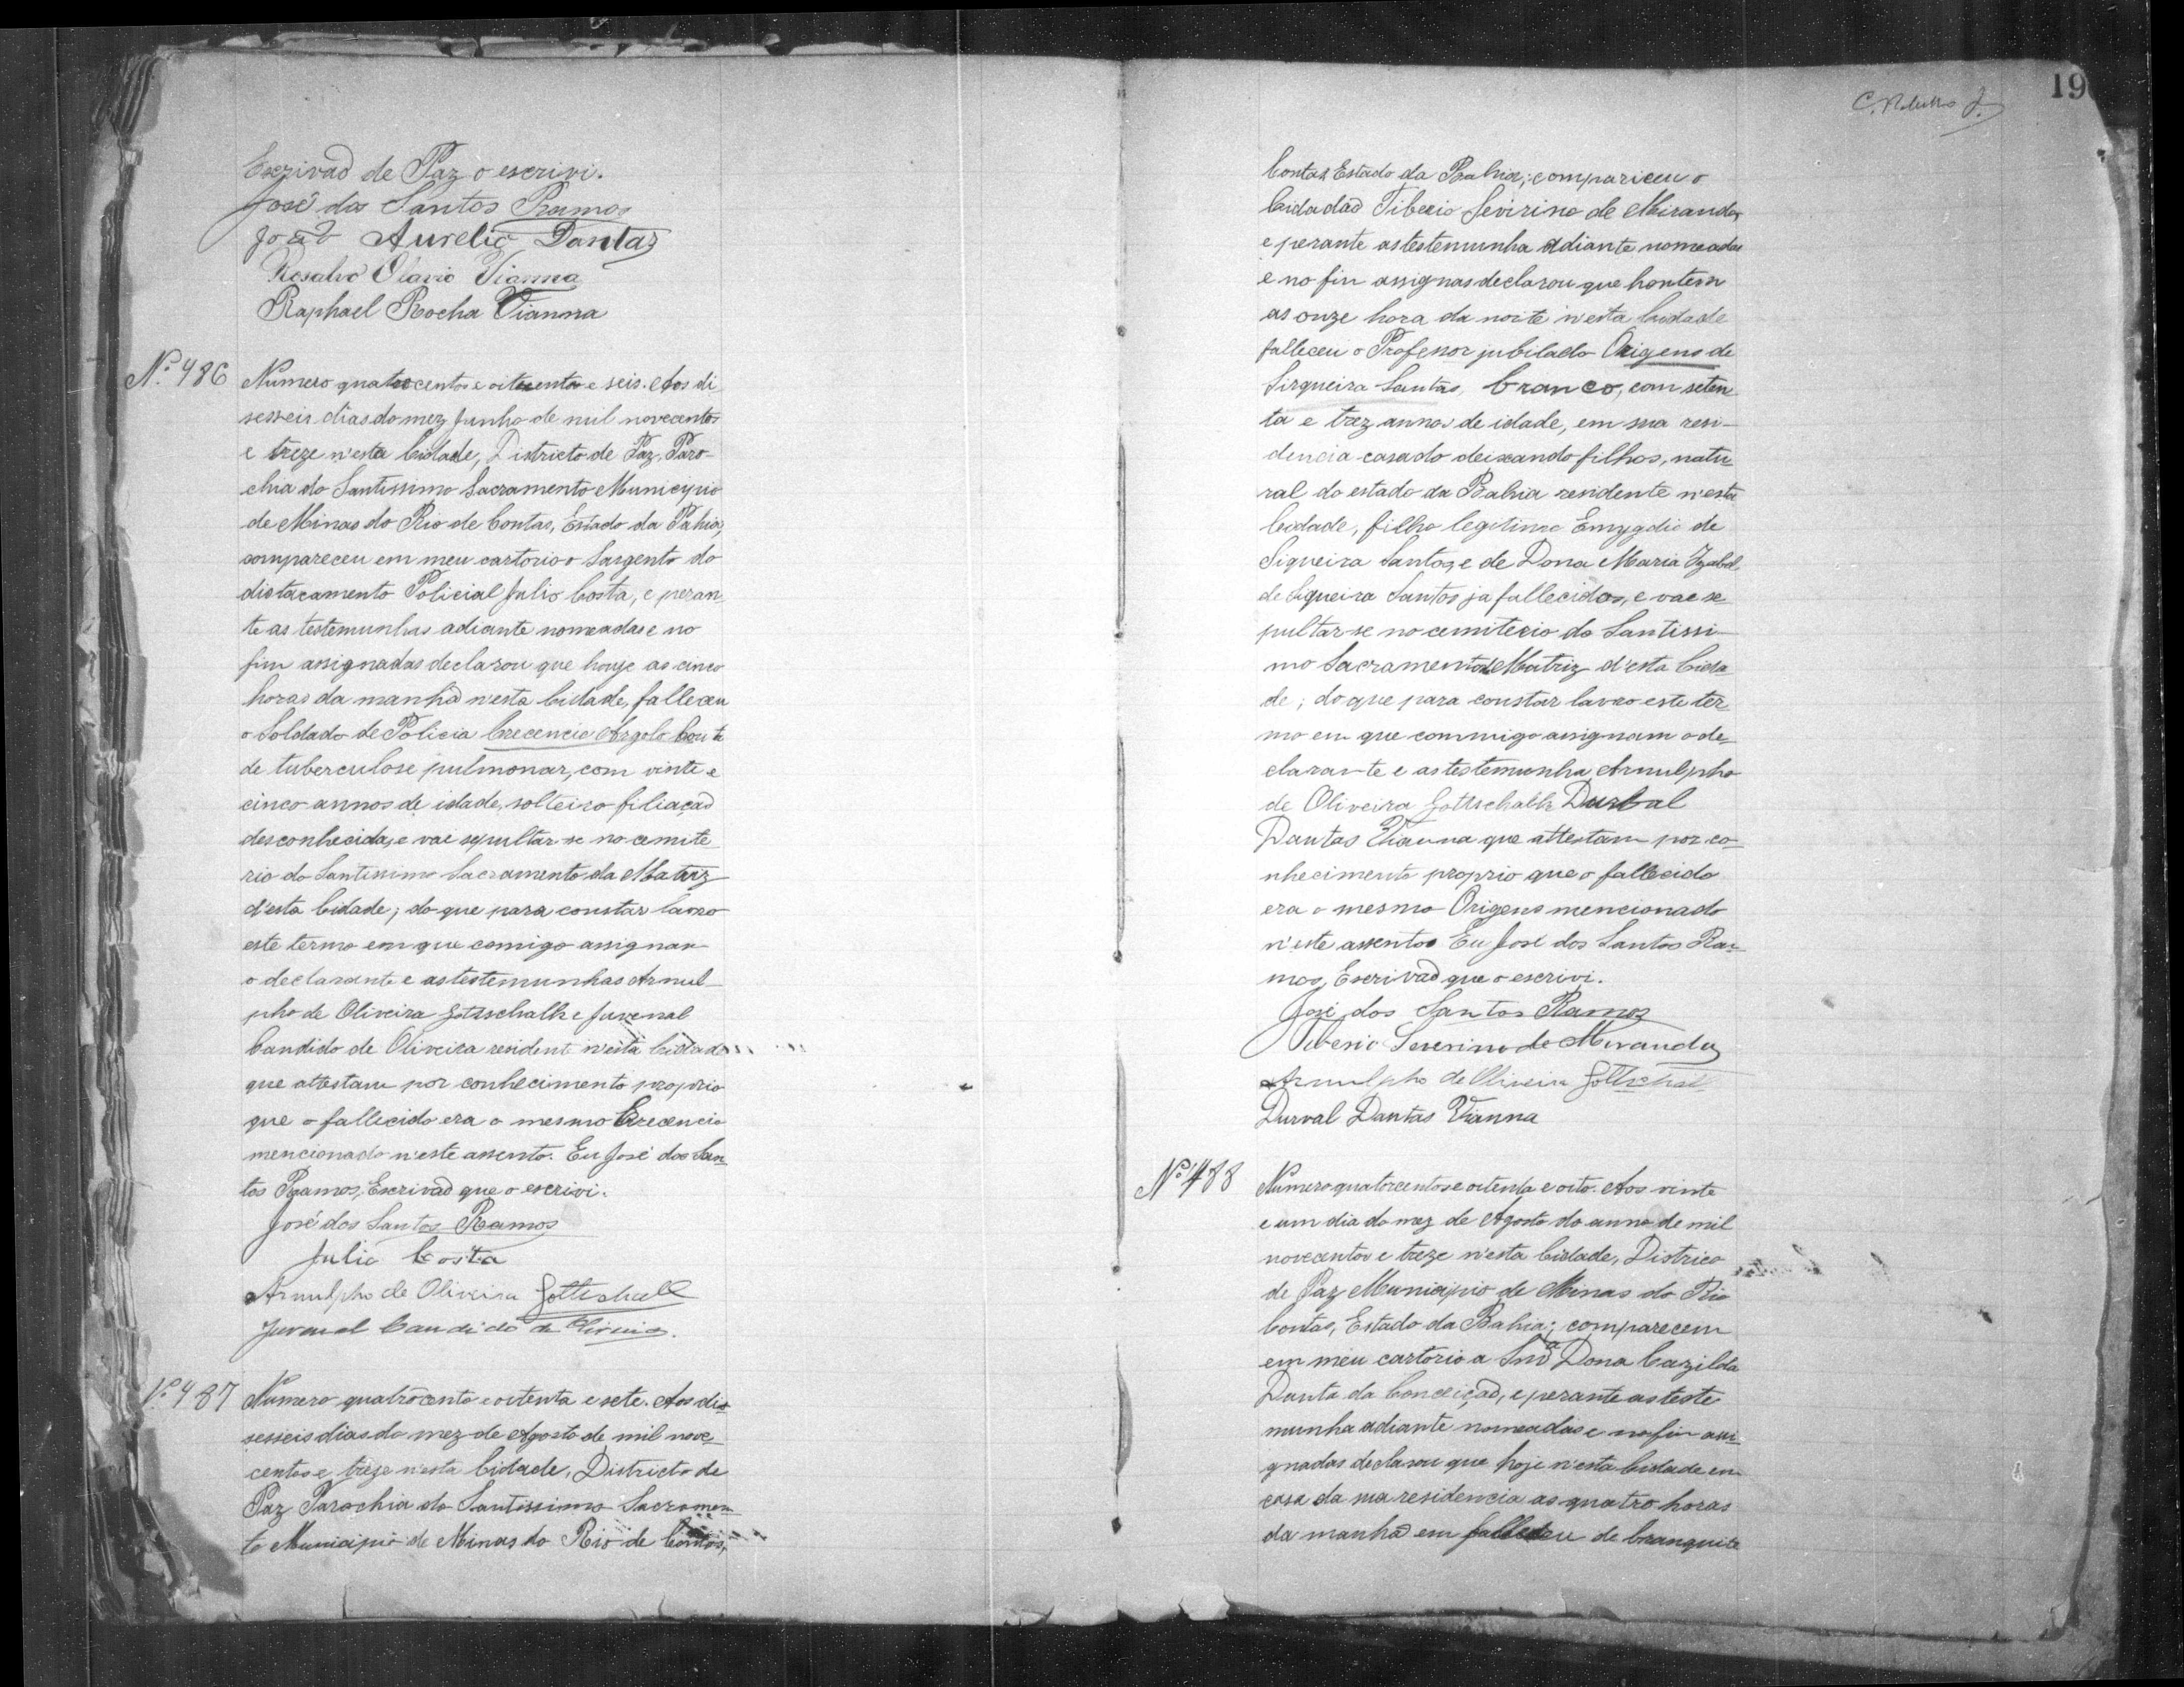 Escrivaõ de Paz o escrivi.
José dos Santos Ramos
João Aurelio Dantas
Rosalvo Olavio Vianna
Raphael Rocha Vianna
Nº 486 Numero quatrocentos e oitenta e seis. Aos di
sesseis dias do mez Junho de mil novecentos
e treze n'esta Cidade, Districto de Paz, Paro-
chia do Santissimo Sacramento Municipio
de Minas do Rio de Contas, Estado da Bahia,
compareceu em meu cartorio o Sargento do
distacamento Policial Julio Costa, e peran-
te as testemunhas adiante nomeadas e no
fim assignadas declarou que houje as cinco
horas da manhã n'esta Cidade, falleceu
o Soldado de Policia Crecencio Argolo
de tuberculose pulmonar, com vinte e
cinco annos de idade, solteiro filiaçaõ
desconhecida, e vae sepultar-se no cemite
rio do Santissimo Sacramento da Matriz
d'esta Cidade; do que para constar lavro
este termo em que comigo assignam
o declarante e as testemunhas Arnul-
pho de Oliveira Gottschalk e Juvenal
Candido de Oliveira resident n'esta Cidade
que attestam por conhecimento proprio
que o fallecido era o mesmo Crecencio
mencionado n'este assento. Eu José dos San
tos Ramos, Escrivaõ que o escrivi.
José dos Santos Ramos
Julio Costa
Arnulpho de Oliveira Gottschall
Juvenal Candido de Oliveira.
Nº 487 Numero quatrocento e oitenta e sete. Aos dis
sesseis dias do mez de Agosto de mil nove-
centos e treze n'esta Cidade, Districto de
Paz Parochia do Santissimo Sacramen
to Municipio de Minas do Rio de Contas,
19
Contas Estado da Bahia; compariceu o
Cidadaõ Tiberio Severino de Miranda,
e perante as testemunha adiante nomeadas
e no fim assignas declarou que hontem
as onze hora da noite n'esta Cidade
falleceu o Professor jubilado Origens de
Sirqueira Santos, branco, com seten
ta e trez annos de idade, em sua resi-
dencia casado deixando filhos, natu-
ral do estado da Bahia residente n'esta
Cidade, filho legitimo Emygdio de
Siqueira Santos, e de Dona Maria Izabel
de Siqueira Santos ja fallecidos, e vae se
pultar-se no cemiterio do Santissi-
mo Sacramento Matriz d'esta Cida
de; do que para constar lavro este ter
mo em que commigo assignam o de-
clarante e as testemunha Arnulpho
de Oliveira Gottschalk Durbal
Dantas Vianna que attestam por co-
nhecimento proprio que o fallecido
era o mesmo Origens mencionado
n'este assento Eu José dos Santos Ra-
mos, Escrivaõ que o escrivi.
José dos Santos Ramos
Tiberio Severino de Miranda
Arnulpho de Oliveira Gottschal
Durval Dantas Vianna
Nº 488 Numero quatrocentos e oitenta e oito. Aos vinte
e um dia do mez de Agosto do anno de mil
novecentos e treze n'esta Cidade, Districo
de Paz Municipio de Minas do Rio
Contas, Estado da Bahia; comparecem
em meu cartorio a Snrª Dona Cazilda
Danta da Conceiçaõ, e perante as teste
munha adiante nomeadas e no fim assi-
gnadas declarou que hoje n'esta Cidade em
casa da sua residencia as quatro horas
da manhã em falleceu de branquite